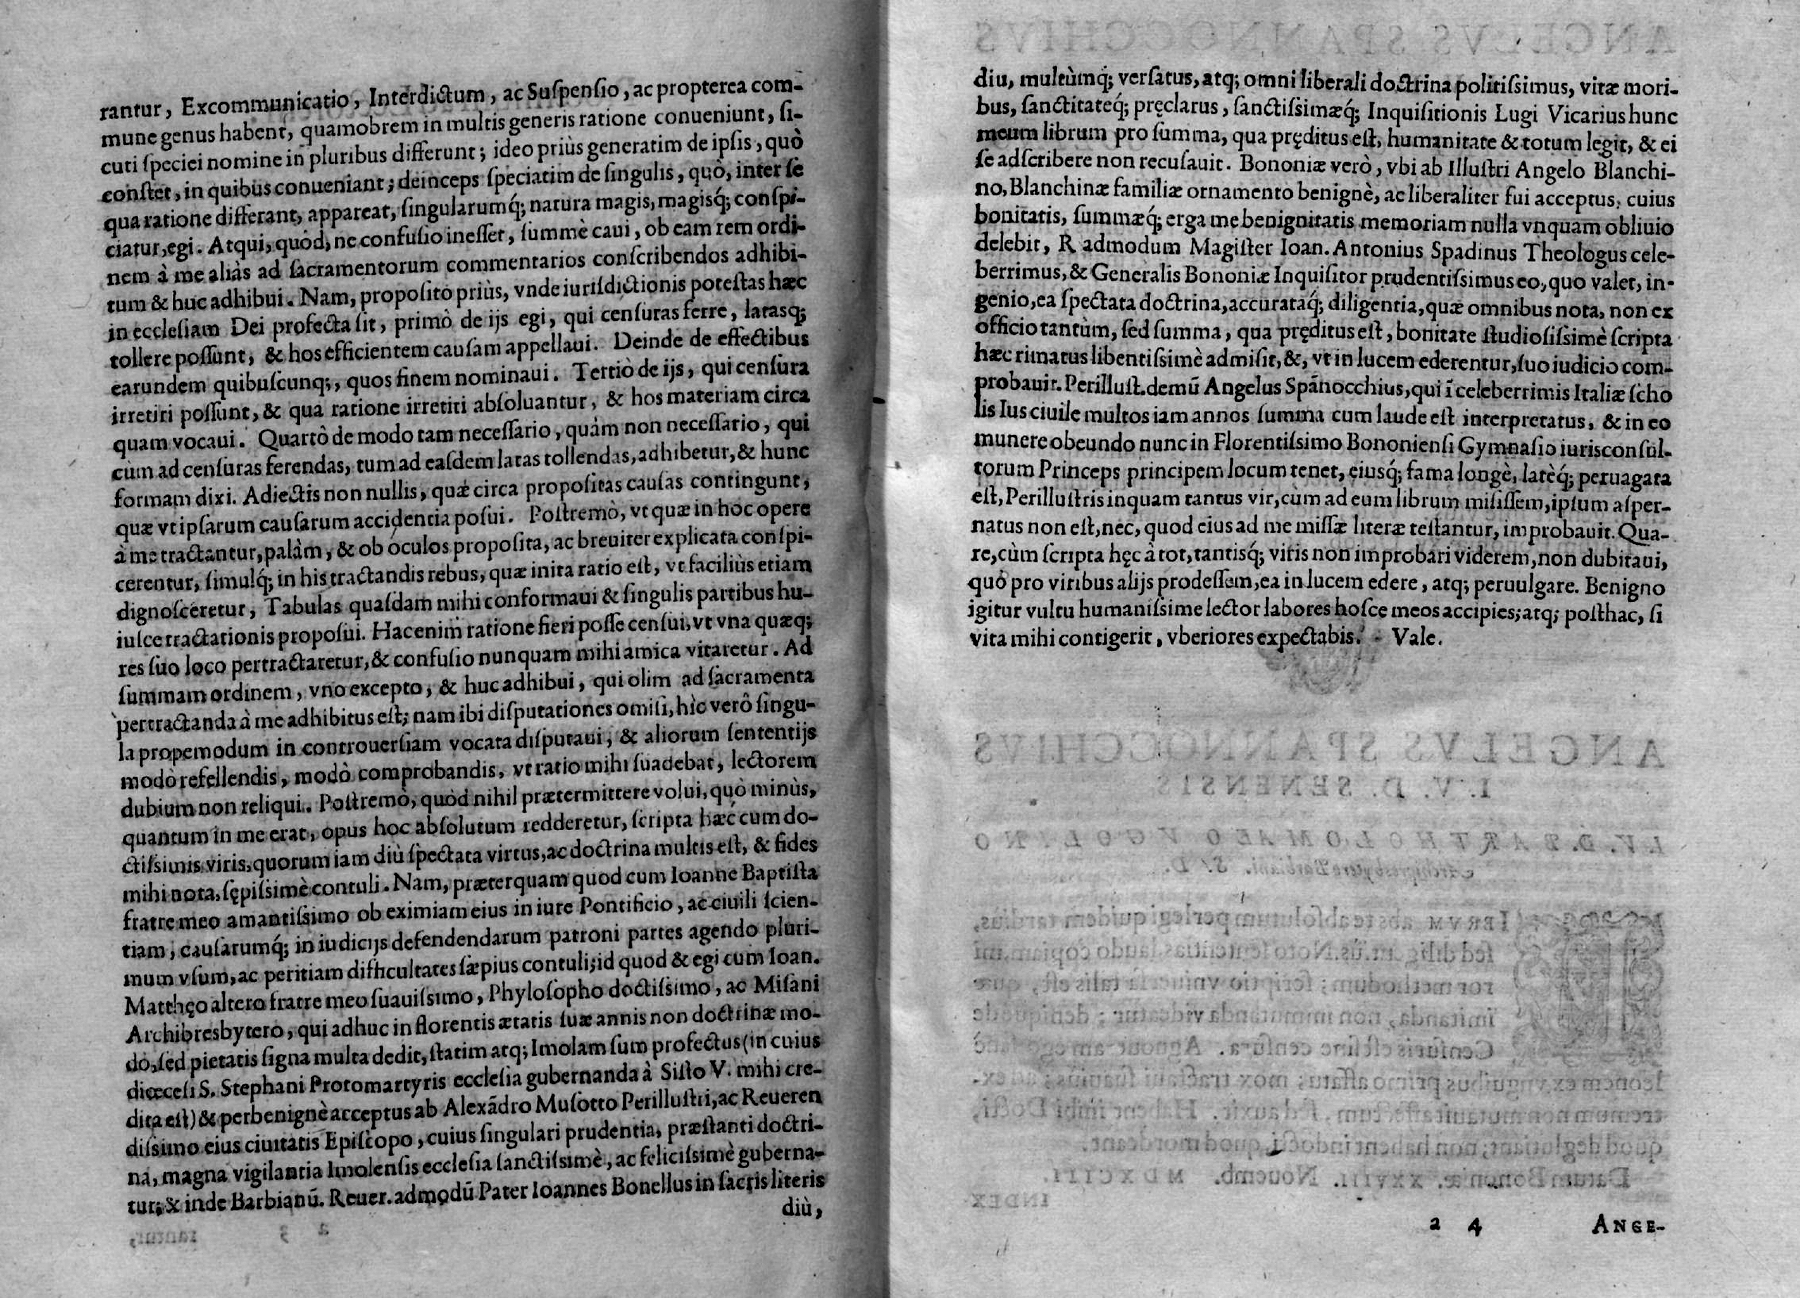 rantur, Excommunicatio, Interdictum, ac Suspensio, ac propterea com-
mune genus habent, quamobrem in multis generis ratione conueniunt, si-
cuti speciei nomine in pluribus differunt; ideo priùs generatim de ipsis, quò
constet, in quibus conueniant; deinceps speciatim de singulis, quò, inter se
qua ratione differant, appareat, singularumq́; natura magis, magisq́; conspi-
ciatur, egi. Atqui, quòd, ne confusio inesset, summè caui, ob eam rem ordi-
nem à me aliàs ad sacramentorum commentarios conscribendos adhibi-
tum & huc adhibui. Nam, proposito priùs, vnde iurisdictionis potestas hæc
in ecclesiam Dei profecta sit, primò de ijs egi, qui censuras ferre, latasq́;
tollere possunt, & hos efficientem causam appellaui. Deinde de effectibus
earundem quibuscunq;, quos finem nominaui. Tertiò de ijs, qui censura
irretiri possunt, & qua ratione irretiti absoluantur, & hos materiam circa
quam vocaui. Quartò de modo tam necessario, quàm non necessario, qui
cùm ad censuras ferendas, tum ad easdem latas tollendas, adhibetur, & hunc
formam dixi. Adiectis non nullis, quæ circa propositas causas contingunt,
quæ vt ipsarum causarum accidentia posui. Postremò, vt quæ in hoc opere
à me tractantur, palàm, & ob oculos proposita, ac breuiter explicata conspi-
cerentur, simulq́; in his tractandis rebus, quæ inita ratio est, vt faciliùs etiam
dignosceretur, Tabulas quasdam mihi conformaui & singulis partibus hu-
iusce tractationis proposui. Hac enim ratione fieri posse censui, vt vna quæq;
res suo loco pertractaretur, & confusio nunquam mihi amica vitaretur. Ad
summam ordinem, vno excepto, & huc adhibui, qui olim ad sacramenta
pertractanda à me adhibitus est; nam ibi disputationes omisi, hìc verò singu-
la propemodum in controuersiam vocata disputaui, & aliorum sententijs
modò refellendis, modò comprobandis, vt ratio mihi suadebat, lectorem
dubium non reliqui. Postremò, quòd nihil prætermittere volui, quò minùs,
quantum in me erat, opus hoc absolutum redderetur, scripta hæc cum do-
ctissimis viris, quorum iam diù spectata virtus, ac doctrina multis est, & fides
mihi nota, sępissimè contuli. Nam, præterquam quod cum Ioanne Baptista
fratre meo amantissimo ob eximiam eius in iure Pontificio, ac ciuili scien-
tiam, causarumq́; in iudicijs defendendarum patroni partes agendo pluri-
mum vsum, ac peritiam difficultates sæpius contuli; id quod & egi cum Ioan.
Matthęo altero fratre meo suauissimo, Phylosopho doctissimo, ac Misani
Archibresbytero, qui adhuc in florentis ætatis suæ annis non doctrinæ mo-
dò, sed pietatis signa multa dedit, statim atq; Imolam sum profectus (in cuius
diœcesi S. Stephani Protomartyris ecclesia gubernanda à Sisto V. mihi cre-
dita est) & perbenignè acceptus ab Alexãdro Musotto Perillustri, ac Reueren
dissimo eius ciuitatis Episcopo, cuius singulari prudentia, præstanti doctri-
na, magna vigilantia Imolensis ecclesia sanctissimè, ac felicissimè guberna-
tur; & inde Barbianũ. Reuer. admodũ Pater Ioannes Bonellus in sacris literis
diù,
diu, multùmq́; versatus, atq; omni liberali doctrina politissimus, vitæ mori-
bus, sanctitateq́; pręclarus, sanctissimæq́; Inquisitionis Lugi Vicarius hunc
meum librum pro summa, qua pręditus est, humanitate & totum legit, & ei
se adscribere non recusauit. Bononiæ verò, vbi ab Illustri Angelo Blanchi-
no, Blanchinæ familiæ ornamento benignè, ac liberaliter fui acceptus, cuius
bonitatis, summæq́; erga me benignitatis memoriam nulla vnquam obliuio
delebit, R admodum Magister Ioan. Antonius Spadinus Theologus cele-
berrimus, & Generalis Bononiæ Inquisitor prudentissimus eo, quo valet, in-
genio, ea spectata doctrina, accurataq́; diligentia, quæ omnibus nota, non ex
officio tantùm, sed summa, qua pręditus est, bonitate studiosissimè scripta
hæc rimatus libentissimè admisit, &, vt in lucem ederentur, suo iudicio com-
probauit. Perillust. demũ Angelus Spãnocchius, qui ĩ celeberrimis Italiæ scho
lis Ius ciuile multos iam annos summa cum laude est interpretatus, & in eo
munere obeundo nunc in Florentissimo Bononiensi Gymnasio iurisconsul-
torum Princeps principem locum tenet, eiusq́; fama longè, latèq́; peruagata
est, Perillustris inquam tantus vir, cùm ad eum librum misissem, ipsum asper-
natus non est, nec, quod eius ad me missæ literæ testantur, improbauit. Qua-
re, cùm scripta hęc à tot, tantisq́; viris non improbari viderem, non dubitaui,
quò pro viribus alijs prodessem, ea in lucem edere, atq; peruulgare. Benigno
igitur vultu humanissime lector labores hosce meos accipies; atq; posthac, si
vita mihi contigerit, vberiores expectabis. Vale.
a 4 ANGE-